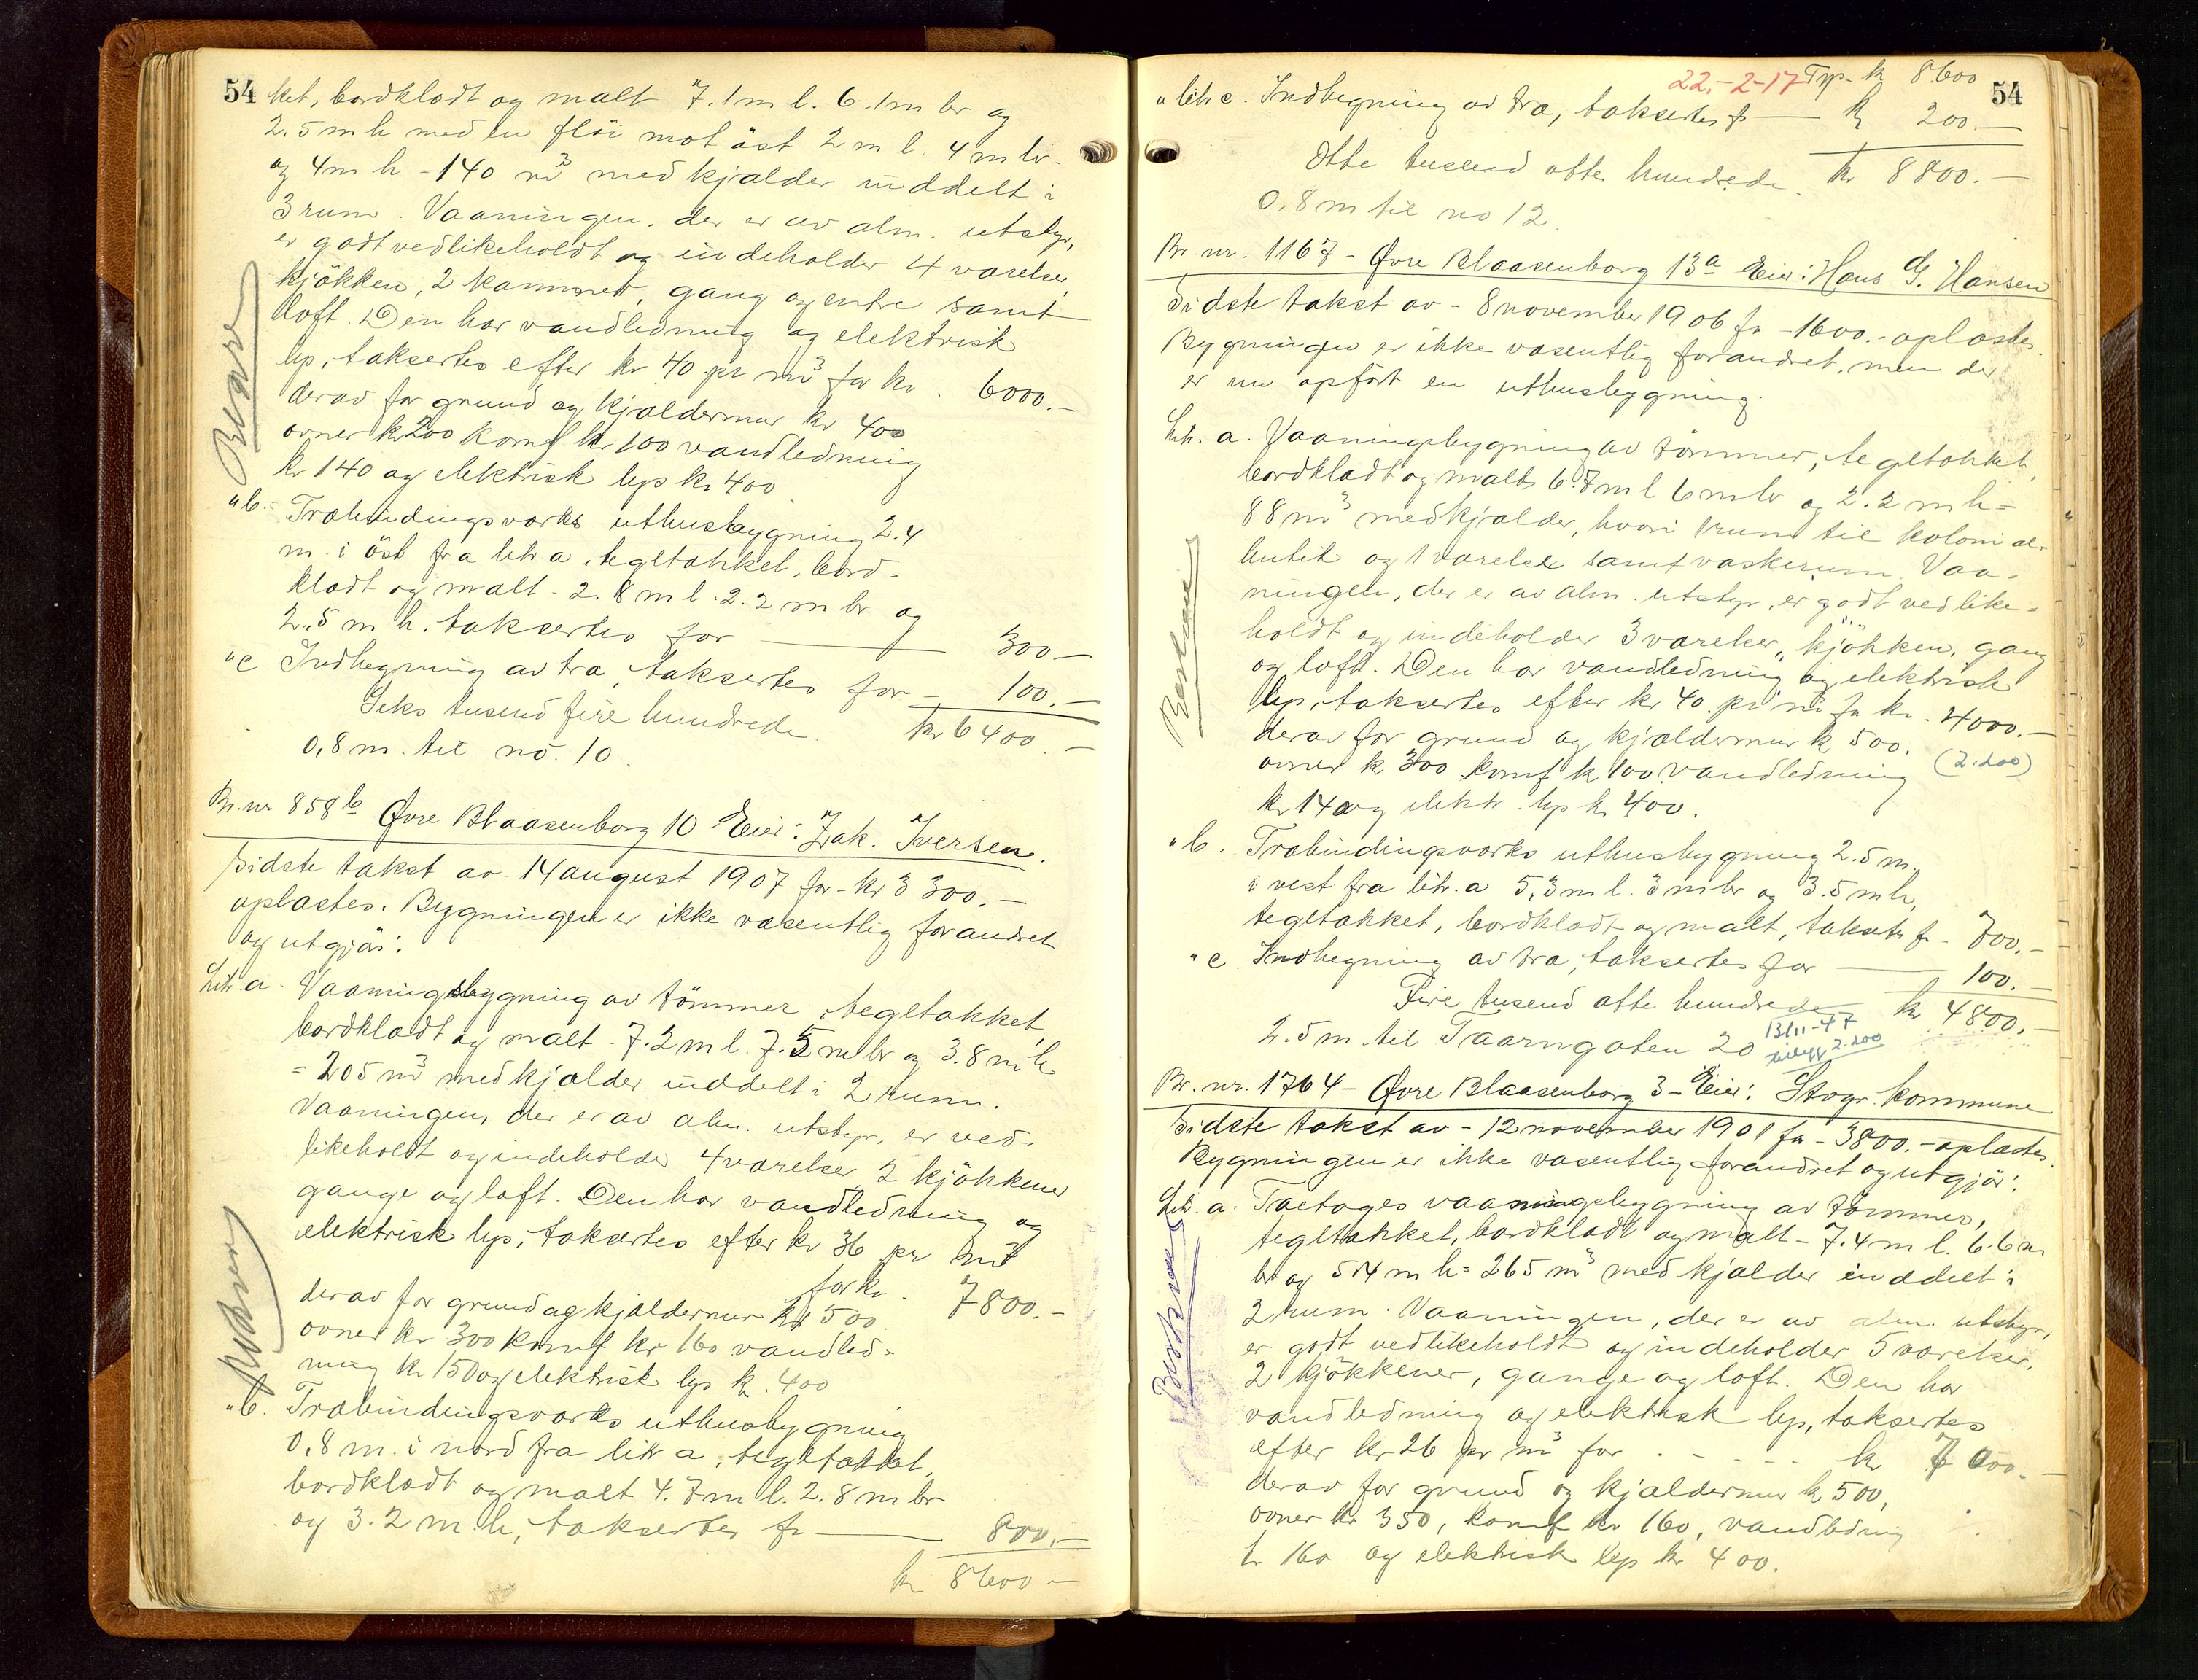 54
ket, bordklædt og malt 7.1 m l. 6.1 m br og
2.5 m h med en flöi mot öst 2 m l. 4 m br.
og 4 m h - 140 m³ med kjælder inddelt i
3 rum. Vaaningen, der er av alm. utstyr,
er godt vedlikeholdt og indeholder 4 værelser,
kjökken, 2 kammer, gang og entre samt
loft. Den har vandledning og elektrisk
lys, taksertes efter kr 40 pr m³ for kr. 6000.-
derav for grund og kjældermur kr 400
ovner kr 200 komf kr 100 vandledning
kr 140 og elektrisk lys kr 400
" b. Træbindingsværks uthusbygning 2.4
m. i öst fra litr a, tegltækket, bord-
klædt og malt - 2.8 m l. 2.2 m br og
2.5 m h. taksertes for 300 -
" c Indhegning av træ, taksertes for - 100.-
Seks tusend fire hundrede kr 6400.-
0,8 m. til no. 10.
Br. nr 858 b Øvre Blaasenborg 10 Eier: Zak. Iversen.
Sidste takst av. 14 august 1907 for - kr 3300.-
oplæstes. Bygningen er ikke væsentlig forandret
og utgjör:
Litr. a. Vaaningsbygning av tömmer, tegltækket,
bordklædt og malt. 7.2 m l. 7.5 m br og 3.8 m h
= 205 m³ med kjælder inddelt i 2 rum.
Vaaningen, der er av alm. utstyr, er ved-
likeholdt og indeholder 4 værelser, 2 kjökkener
gange og loft. Den har vandledning og
elektrisk lys, taksertes efter kr 36 pr m³
for kr. 7800.-
derav for grund og kjældermur kr 500.
ovner kr 300 komf kr 160 vandled-
ning kr 150 og elektrisk lys kr. 400
" b. Træbindingsværks uthusbygning
0,8 m. i nord fra litr a, tegltækket,
bordklædt og malt 4.7 m l. 2.8 m br
og 3.2 m h, taksertes fr 800.-
kr 8600 -
22.-2-17 Trp. kr 8600
54
" litr c. Indhegning av træ, taksertes fr kr 200.-
Otte tusend otte hundrede. kr 8800.-
0.8 m til no 12.
Br. nr. 1167 - Øvre Blaasenborg 13a Eier: Hans G. Hansen
Sidste takst av - 8 november 1906 fr - 1600.- oplæstes.
Bygningen er ikke væsentlig forandret, men der
er nu opfört en uthusbygning.
Litr. a. Vaaningsbygning av tömmer, tegltækket,
bordklædt og malt 6.7 m l 6 m br og 2.2 m h =
88 m³ med kjælder, hvori 1 rum til kolonial-
butik og 1 værelse samt vaskerum. Vaa-
ningen, der er av alm. utstyr, er godt vedlike-
holdt og indeholder 3 værelser, kjökken, gang
og loft. Den har vandledning og elektrisk
lys, taksertes efter kr 40 pr m³ fr kr. 4000.-
derav for grund og kjældermur kr 500. (2.200)
ovner kr 300 komf kr 100 vandledning
kr 140 og elektr. lys kr 400.
" b. Træbindingsværks uthusbygning 2.5 m.
i vest fra litr. a 5,3 m l. 3 m br og 3.5 m h,
tegltækket, bordklædt og malt, takstr fr - 700.-
" c. Indhegning av træ, taksertes for 100.-
Fire tusend otte hundrede kr 4800.-
2.5 m. til Taarngaten 20 13/11-47
2.200
Br. nr. 1764 - Øvre Blaasenborg 3 - Eier: Stvgr. kommune
Sidste takst av - 12 november 1901 fr - 3800.- oplæstes.
Bygningen er ikke væsentlig forandret og utgjör:
Litr. a. Toetages vaaningsbygning av tömmer,
tegltækket, bordklædt og malt - 7.4 m l. 6.6 m
br og 5.4 m h = 265 m³ med kjælder inddelt i
2 rum. Vaaningen, der er av alm. utstyr,
er godt vedlikeholdt og indeholder 5 værelser,
2 kjökkener, gange og loft. Den har
vandledning og elektrisk lys, taksertes
efter kr 26 pr m³ for kr 7000.-
derav for grund og kjældermur kr 500,
ovner kr 350, komf kr 160, vandledning
kr 160 og elektrisk lys kr 400.